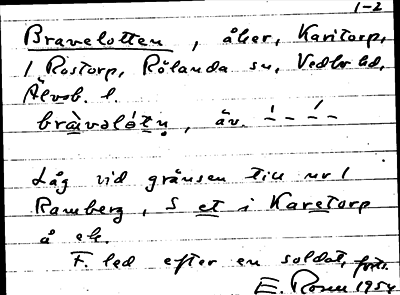 1-2
Bravelotten, åker, Karitorp,
1 Rostorp, Rölanda sn, Vedbo hd,
Älvsb. l.
bràvəlótn, äv.
Låg vid gränsen till nr 1
Ramberg, S et i Karetorp
å ek.
F. led efter en soldat, forts.
E. 1954